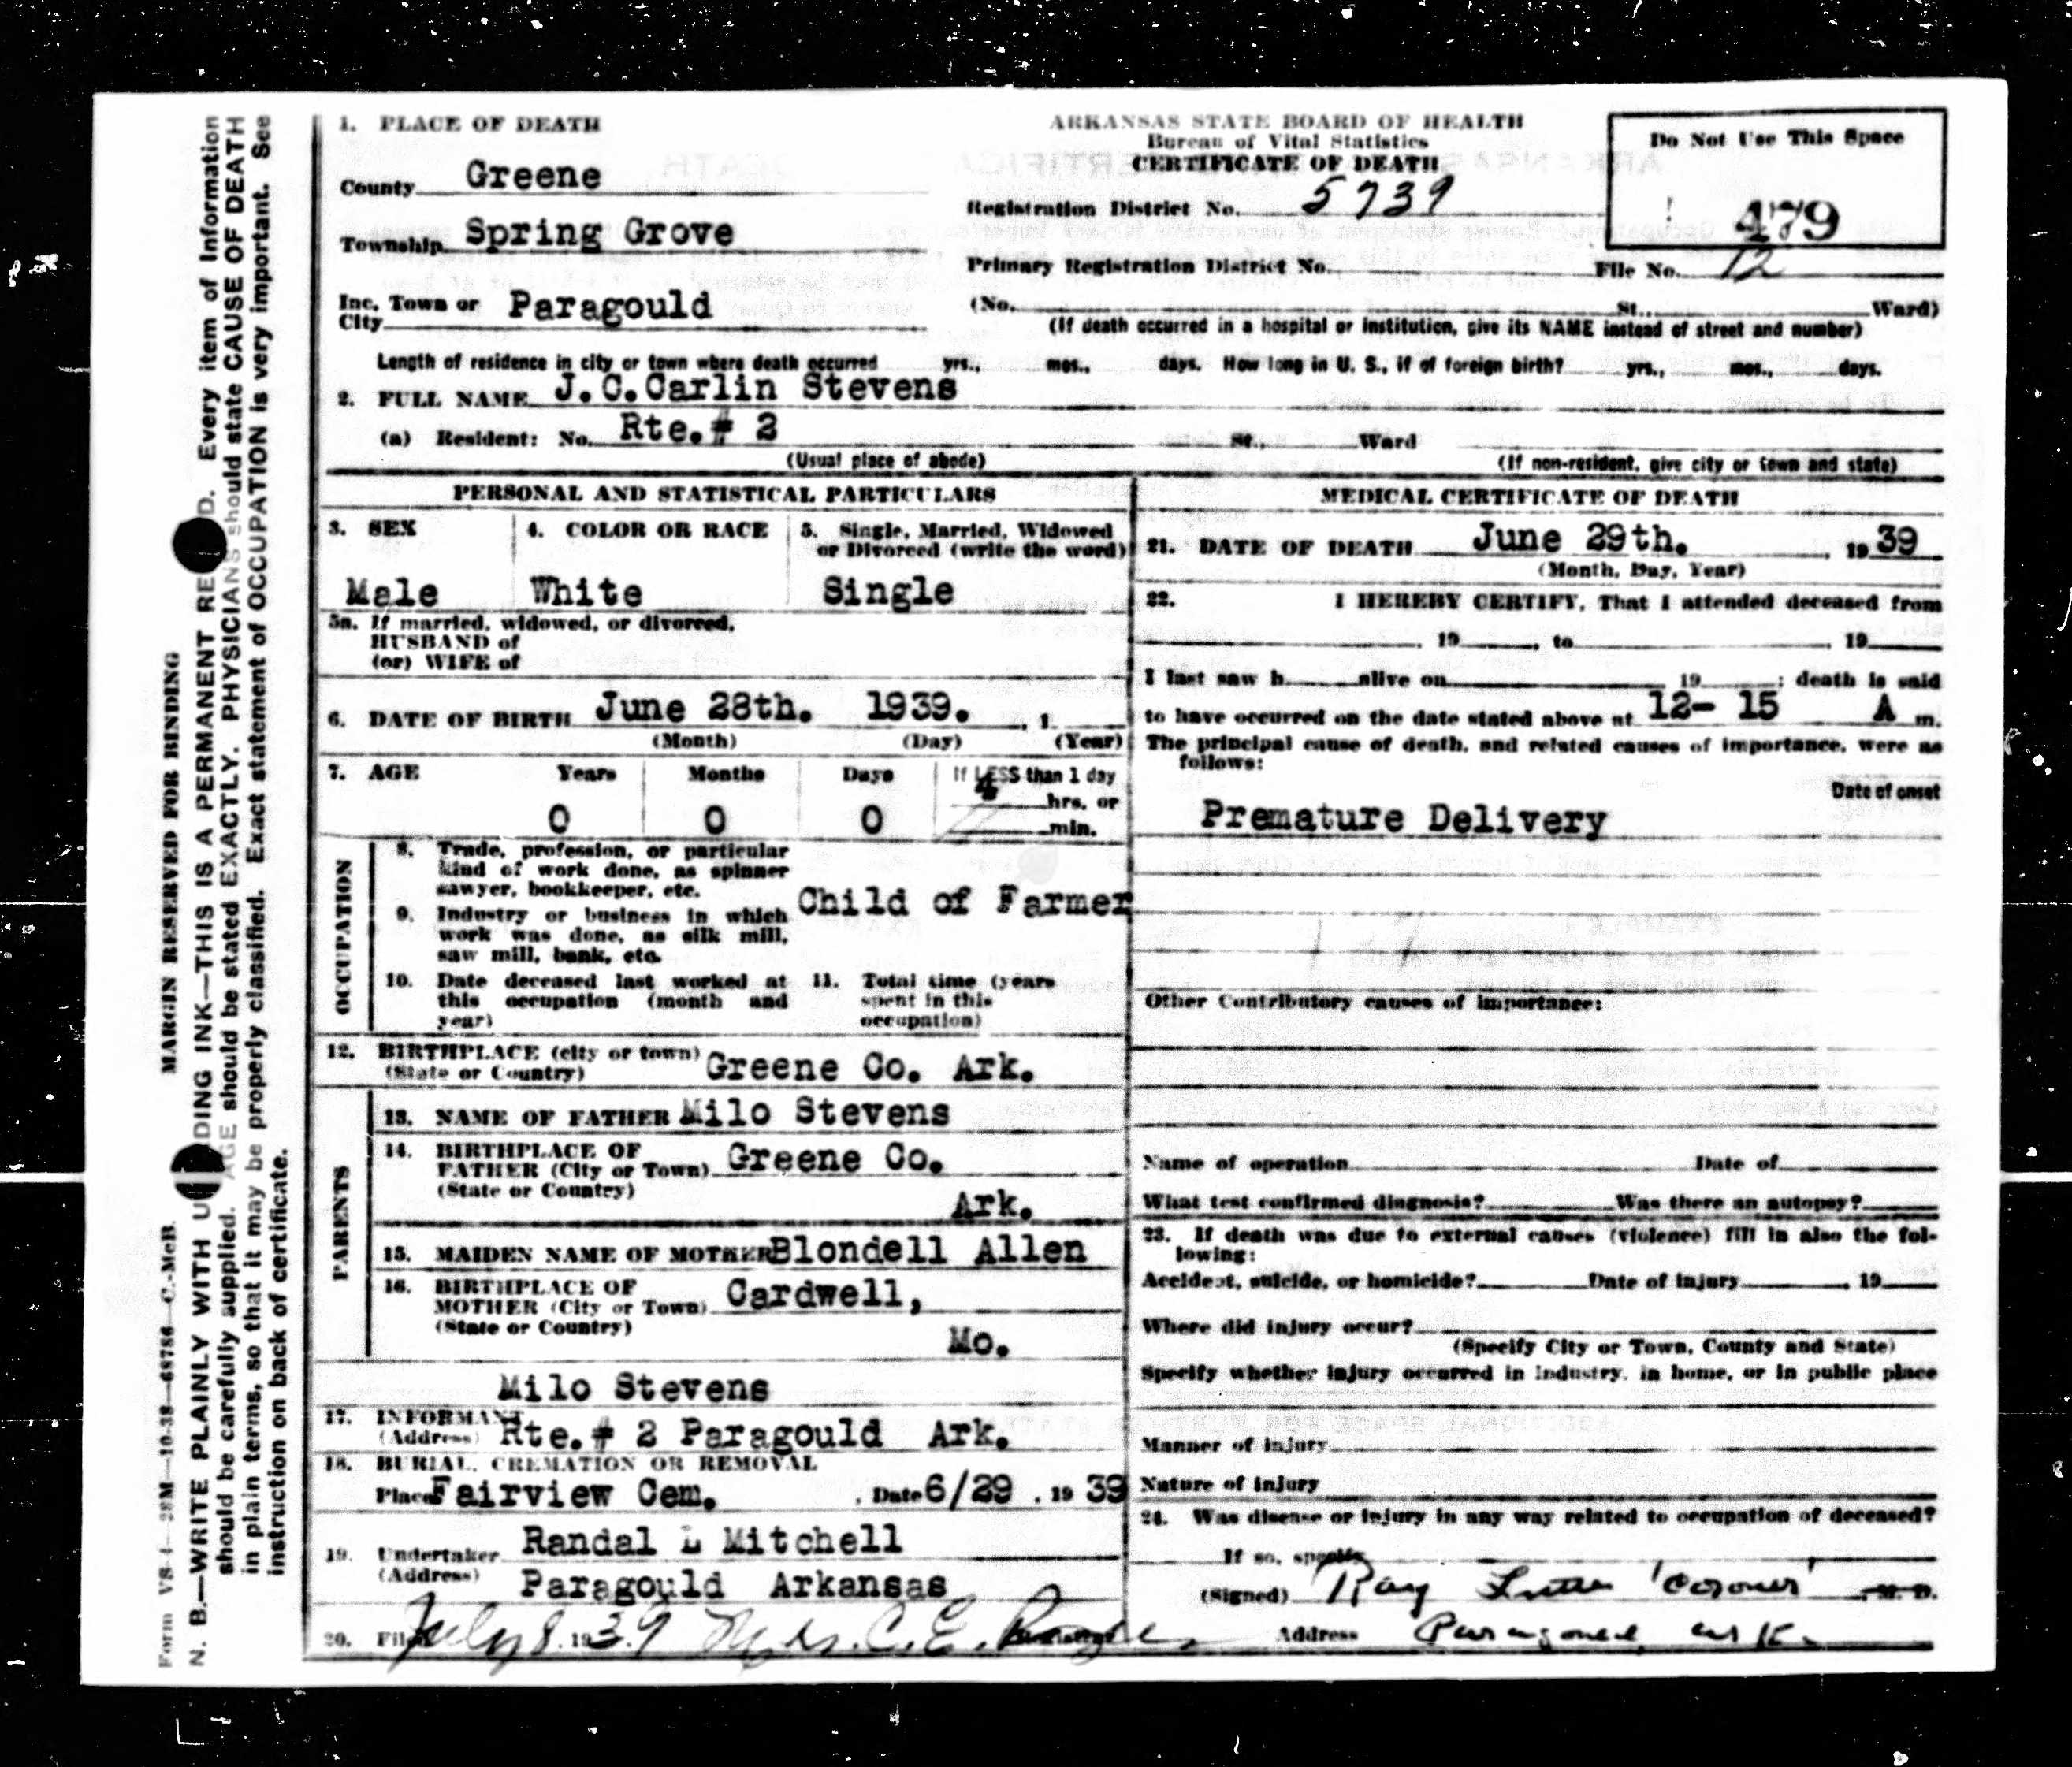 1. PLACE OF DEATH
County Greene
Township Spring Grove
Inc. Town or City Paragould
ARKANSAS STATE BOARD OF HEALTH
Bureau of Vital Statistics
CERTIFICATE OF DEATH
Registration District No. 5739
Primary Registration District No. File No. 12
Do Not Use This Space
479
(No. St., Ward)
(If death occurred in a hospital or institution, give its NAME instead of street and number)
Length of residence in city or town where death occurred yrs., mos., days. How long in U. S., if of foreign birth? yrs., mos., days.
2. FULL NAME J.C.Carlin Stevens
(a) Resident: No. Rte.# 2 St., Ward
(Usual place of abode) (If non-resident, give city or town and state)
PERSONAL AND STATISTICAL PARTICULARS
3. SEX
Male
4. COLOR OR RACE
White
5. Single, Married, Widowed
or Divorced (write the word)
Single
5a. If married, widowed, or divorced,
HUSBAND of
(or) WIFE of
6. DATE OF BIRTH June 28th. 1939. , 1
(Month) (Day) (Year)
7. AGE Years Months Days If LESS than 1 day
4 hrs. or
0 0 0 min.
OCCUPATION
8. Trade, profession, or particular
kind of work done, as spinner
sawyer, bookkeeper, etc.
Child of Farmer
9. Industry or business in which
work was done, as silk mill,
saw mill, bank, etc.
10. Date deceased last worked at
this occupation (month and
year)
11. Total time (years
spent in this
occupation)
12. BIRTHPLACE (city or town)
(State or Country) Greene Co. Ark.
PARENTS
13. NAME OF FATHER Milo Stevens
14. BIRTHPLACE OF
FATHER (City or Town) Greene Co.
(State or Country)
Ark.
15. MAIDEN NAME OF MOTHER Blondell Allen
16. BIRTHPLACE OF
MOTHER (City or Town) Cardwell,
(State or Country)
Mo.
Milo Stevens
17. INFORMANT
(Address) Rte.# 2 Paragould Ark.
18. BURIAL, CREMATION OR REMOVAL
Place Fairview Cem. , Date 6/29 , 19 39
19. Undertaker Randal L Mitchell
(Address) Paragould Arkansas
20. Filed July 8 , 1939. Mrs. C. E.
MEDICAL CERTIFICATE OF DEATH
21. DATE OF DEATH June 29th. , 19 39
(Month, Day, Year)
22. I HEREBY CERTIFY, That I attended deceased from
, 19 , to , 19
I last saw h alive on 19 ; death is said
to have occurred on the date stated above at 12- 15 A m.
The principal cause of death, and related causes of importance, were as
follows:
Date of onset
Premature Delivery
Other Contributory causes of importance:
Name of operation Date of
What test confirmed diagnosis? Was there an autopsy?
23. If death was due to external causes (violence) fill in also the fol-
lowing:
Accident, suicide, or homicide? Date of injury , 19
Where did injury occur?
(Specify City or Town, County and State)
Specify whether injury occurred in industry, in home, or in public place
Manner of injury
Nature of injury
24. Was disease or injury in any way related to occupation of deceased?
If so, specify
(Signed) Ray 'Coroner' , M. D.
Address Paragould, ark.
MARGIN RESERVED FOR BINDING
N. B.—WRITE PLAINLY WITH U DING INK—THIS IS A PERMANENT RE D. Every item of Information
should be carefully supplied. AGE should be stated EXACTLY. PHYSICIANS should state CAUSE OF DEATH
in plain terms, so that it may be properly classified. Exact statement of OCCUPATION is very important. See
instruction on back of certificate.
Form VS-4—28M—10-38—68786—C.-McB.